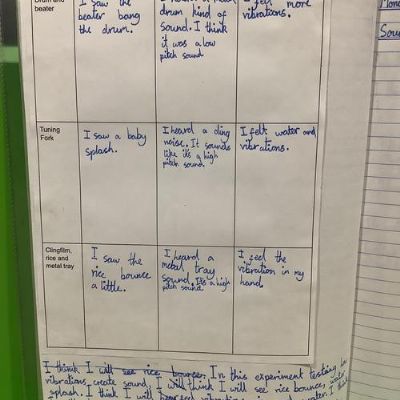 Drum and
beater
I saw the
beater bang
the drum.
drum kind of
sound. I think
it was a low
pitch sound
I felt more
vibrations.
Tuning
Fork
I saw a baby
splash.
I heard a ding
noise. It sounds
like it's a high
pitch sound.
I felt water and
vibrations.
Clingfilm,
rice and
metal tray
I saw the
rice bounce
a little.
I heard a
metal tray
sound. It's a high
pitch sound.
I feel the
vibration in my
hand.
I think I will see rice bounce. In this experiment testing
vibrations create sound, I will think I will see rice bounce, water
splash. I think I will hear
Sou